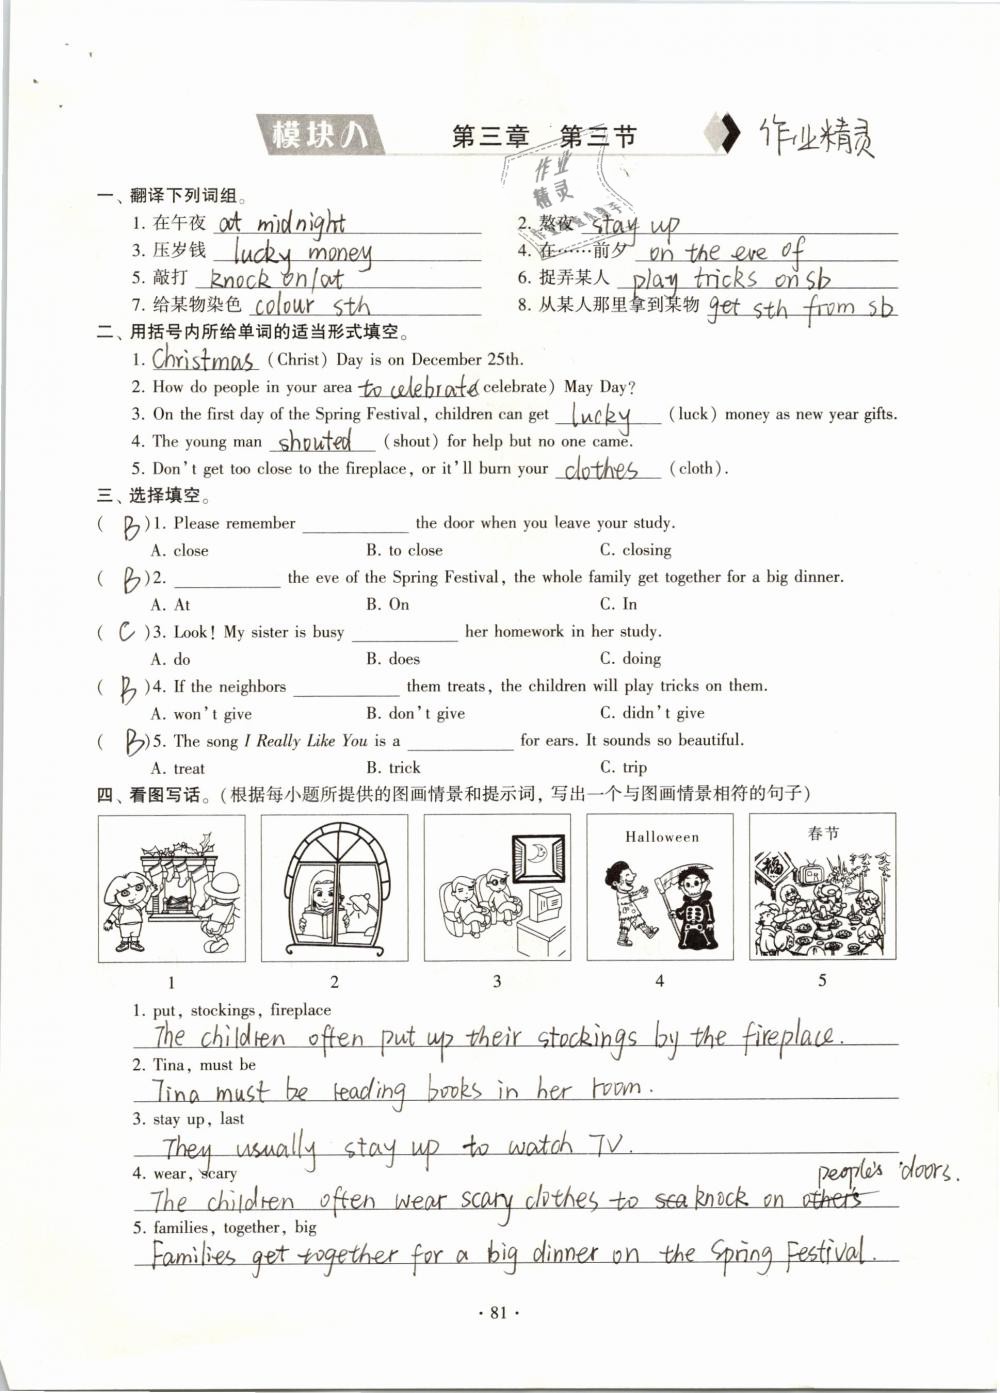 模块八 第三章 第三节 作业精灵
作业
精灵
一、翻译下列词组。
1. 在午夜 at midnight 2. 熬夜 stay up
3. 压岁钱 lucky money 4. 在……前夕 on the eve of
5. 敲打 knock on/at 6. 捉弄某人 play tricks on sb
7. 给某物染色 colour sth 8. 从某人那里拿到某物 get sth from sb
二、用括号内所给单词的适当形式填空。
1. Christmas (Christ) Day is on December 25th.
2. How do people in your area to celebrate celebrate) May Day?
3. On the first day of the Spring Festival, children can get lucky (luck) money as new year gifts.
4. The young man shouted (shout) for help but no one came.
5. Don't get too close to the fireplace, or it'll burn your clothes (cloth).
三、选择填空。
( B )1. Please remember ________ the door when you leave your study.
A. close B. to close C. closing
( B )2. ________ the eve of the Spring Festival, the whole family get together for a big dinner.
A. At B. On C. In
( C )3. Look! My sister is busy ________ her homework in her study.
A. do B. does C. doing
( B )4. If the neighbors ________ them treats, the children will play tricks on them.
A. won't give B. don't give C. didn't give
( B )5. The song I Really Like You is a ________ for ears. It sounds so beautiful.
A. treat B. trick C. trip
四、看图写话。(根据每小题所提供的图画情景和提示词，写出一个与图画情景相符的句子)
Halloween 春节
福
1 2 3 4 5
1. put, stockings, fireplace
The children often put up their stockings by the fireplace.
2. Tina, must be
Tina must be reading books in her room.
3. stay up, last
They usually stay up to watch TV.
4. wear, scary
people's doors.
The children often wear scary clothes to sca knock on others
5. families, together, big
Families get together for a big dinner on the Spring Festival.
· 81 ·